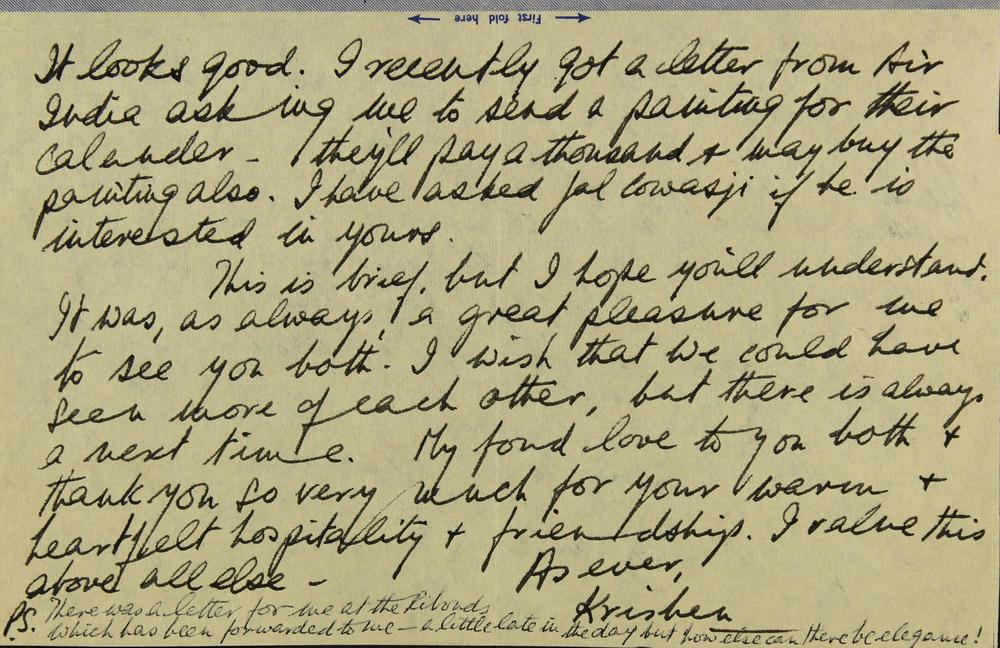 First fold here
It looks good. I recently got a letter from Air
India asking me to send a painting for their
calander - they'll pay a thousand & may buy the
painting also. I have asked Jal Cowasji if he is
interested in yours.
This is brief, but I hope you'll understand.
It was, as always, a great pleasure for me
to see you both. I wish that we could have
seen more of each other, but there is always
a next time. My fond love to you both &
thank you so very much for your warm &
heartfelt hospitality & friendship. I value this
above all else -
As ever,
Krishen
P.S. There was a letter for me at the
which has been forwarded to me - a little late in the day but how else can there be elegance!